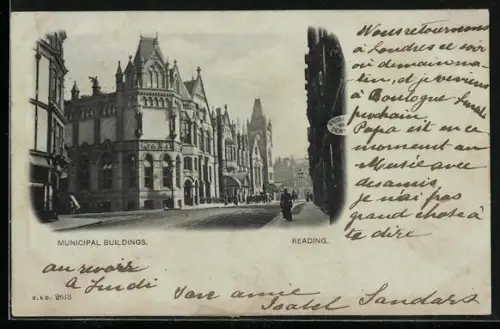 Nous retournons
à Londres ce soir
ou demain ma-
tin, et je reviens
à Boulogne Lundi
prochain.
Papa est en ce
moment au
Musée avec
des amis,
je n'ai pas
grand chose à
te dire
MUNICIPAL BUILDINGS.
READING.
au revoir
à Lundi
Ton amie
Isabel Sandars
G.S.O. 2613